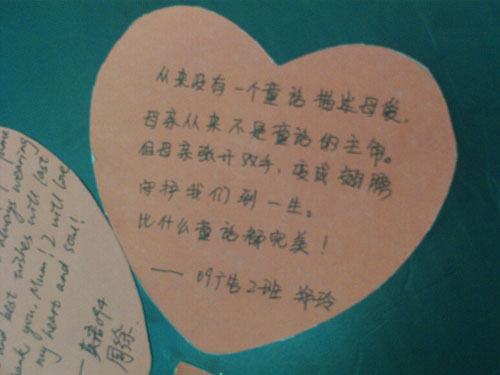 从来没有一个童话描述母爱,
母亲从来不是童话的主角。
但母亲张开双手,变成翅膀
守护我们到一生。
比什么童话都完美!
—— 09广告2班 郑玲
always wearing
best wishes will last
thank you, Mum! I will love
my heart and soul!
— 英语094
周徐